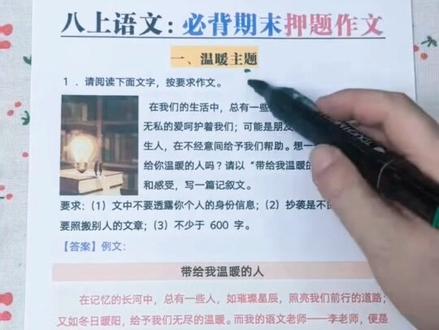 八上语文：必背期末押题作文
一、温暖主题
1．请阅读下面文字，按要求作文。
在我们的生活中，总有一些
无私的爱呵护着我们；可能是朋友
生人，在不经意间给予我们帮助。想一
给你温暖的人吗？请以“带给我温暖的
和感受，写一篇记叙文。
要求：（1）文中不要透露你个人的身份信息；（2）抄袭是不
要照搬别人的文章；（3）不少于 600 字。
【答案】例文：
带给我温暖的人
在记忆的长河中，总有一些人，如璀璨星辰，照亮我们前行的道路；
又如冬日暖阳，给予我们无尽的温暖。而我的语文老师——李老师，便是